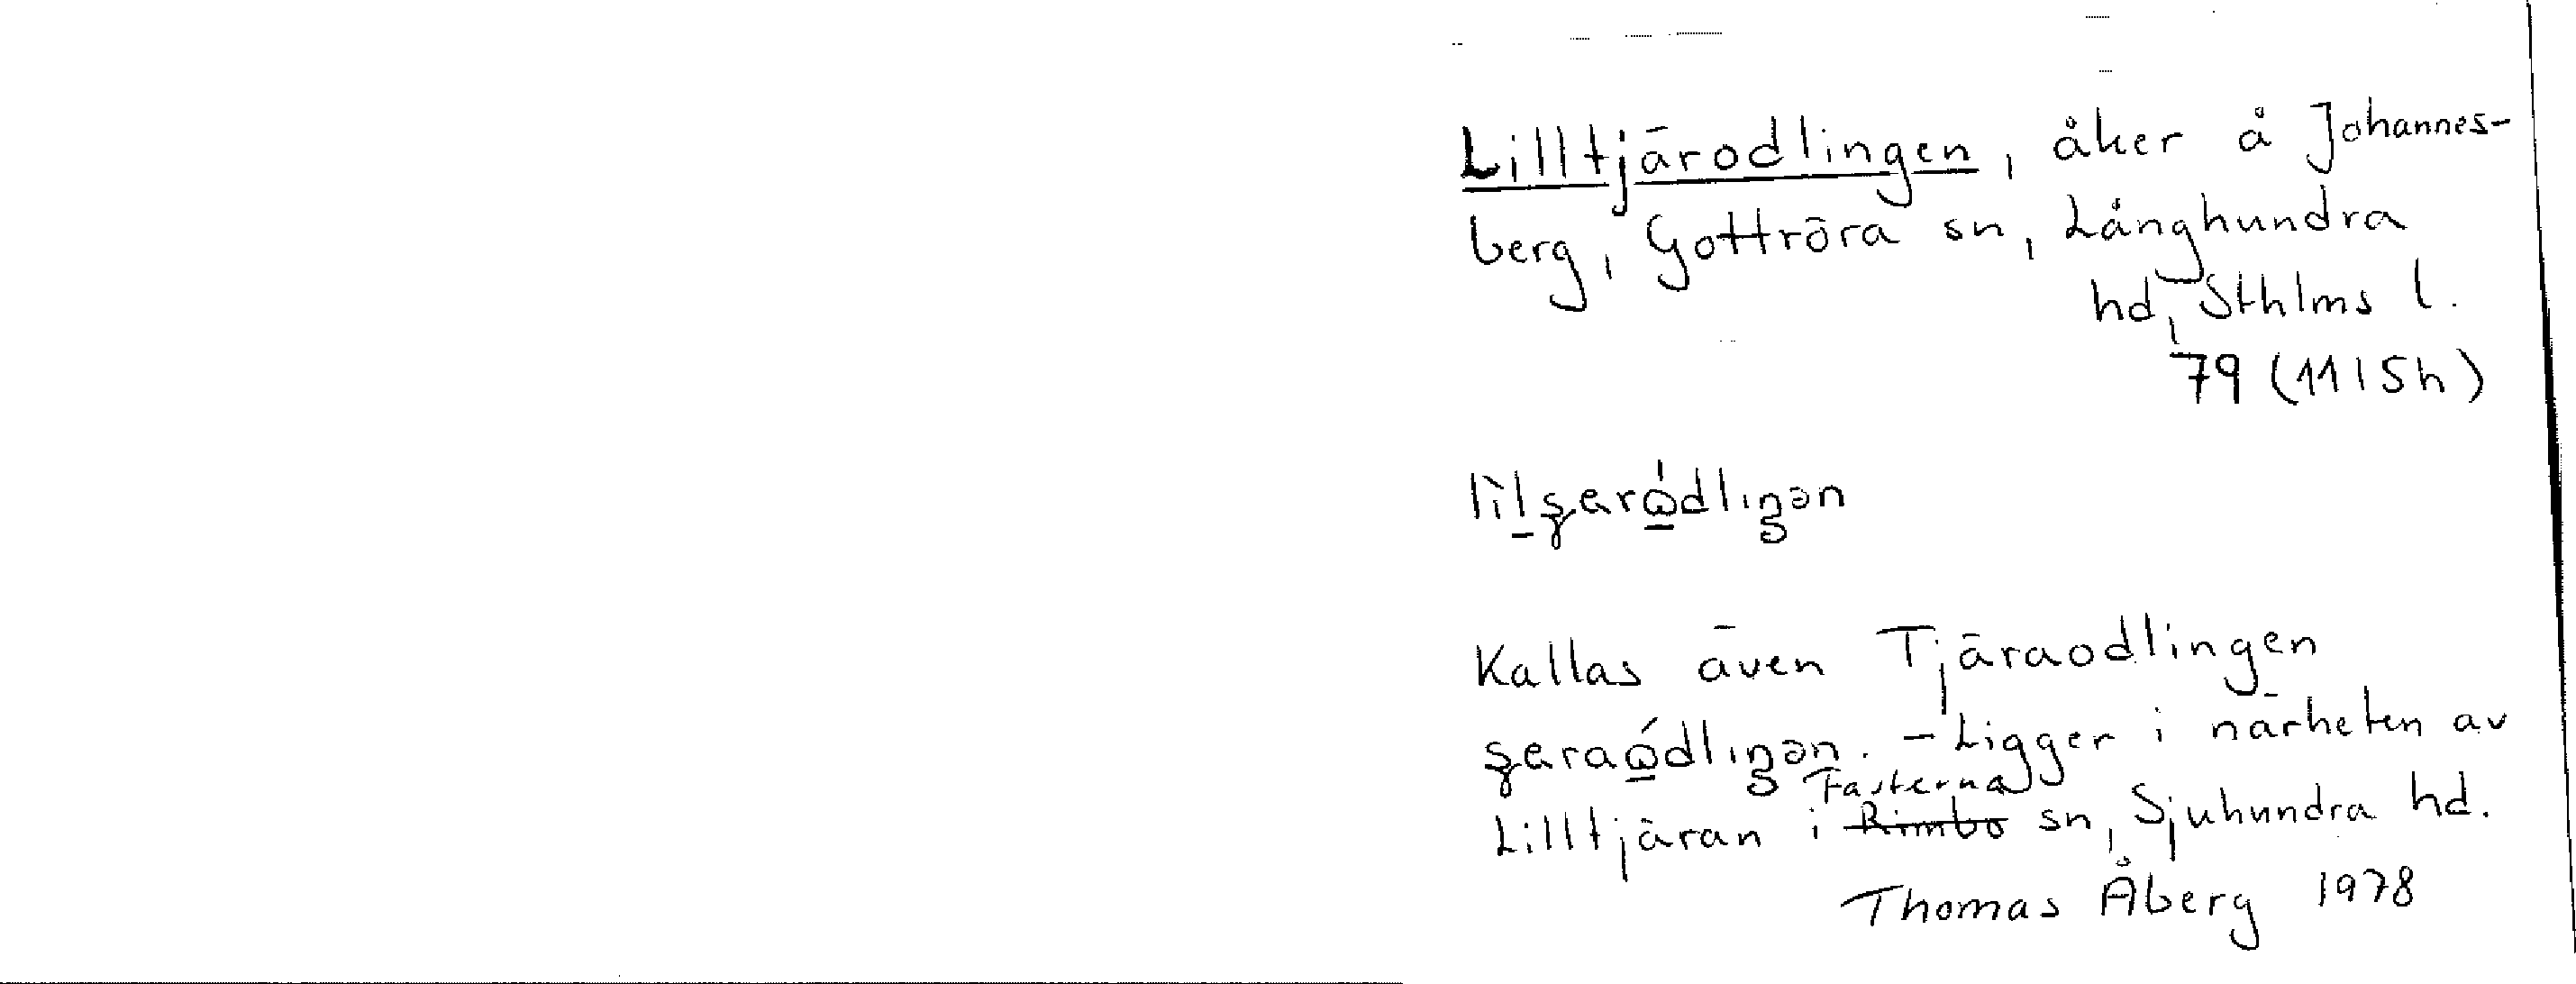 Lilltjärodlingen, åker å Johannes-
berg, Gottröra sn, Långhundra
hd, Sthlms l.
79 (11I5h)
Kallas även Tjäraodlingen
. – Ligger i närheten av
Fasterna
Lilltjäran i Rimbo sn, Sjuhundra hd.
Thomas Åberg 1978